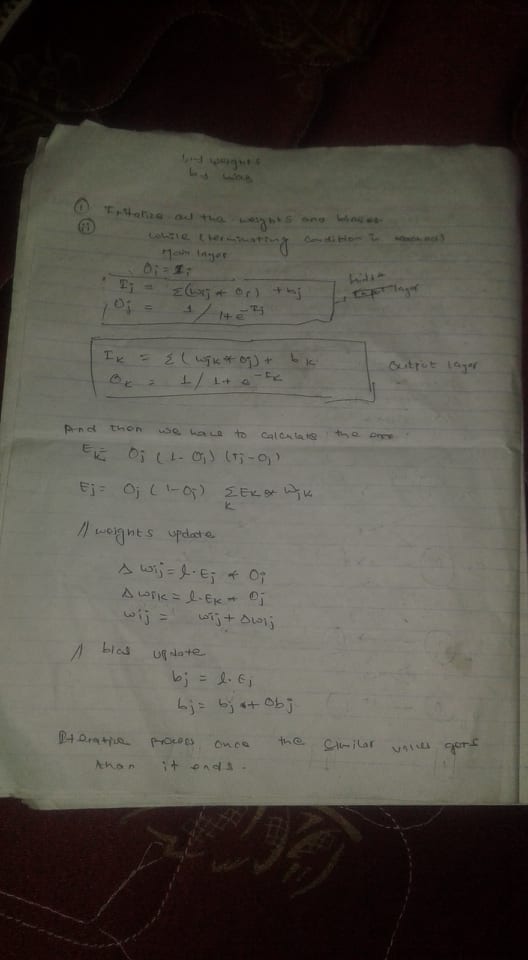 weights
bias
(i) Initialize all the weights and biases
(ii) while (terminating condition is reached)
layer
Oi = Ii
Ij = Σ(wij * Oi) + bj
hidden
Input layer
Oj = 1 / 1 + e^-Ij
IK = Σ(wjK * Oj) + bK
OK = 1 / 1 + e^-IK
Output layer
And then we have to calculate the error.
EK = Oj (1 - Oj) (Tj - Oj)
Ej = Oj (1 - Oj) Σ EK * WjK
K
// weights update
Δ wij = l.Ej * Oi
Δ wjK = l.EK * Oj
wij = wij + Δwij
// bias update
bj = l.Ej
bj = bj + Obj
Iterative process once the similar values gets
than it ends.